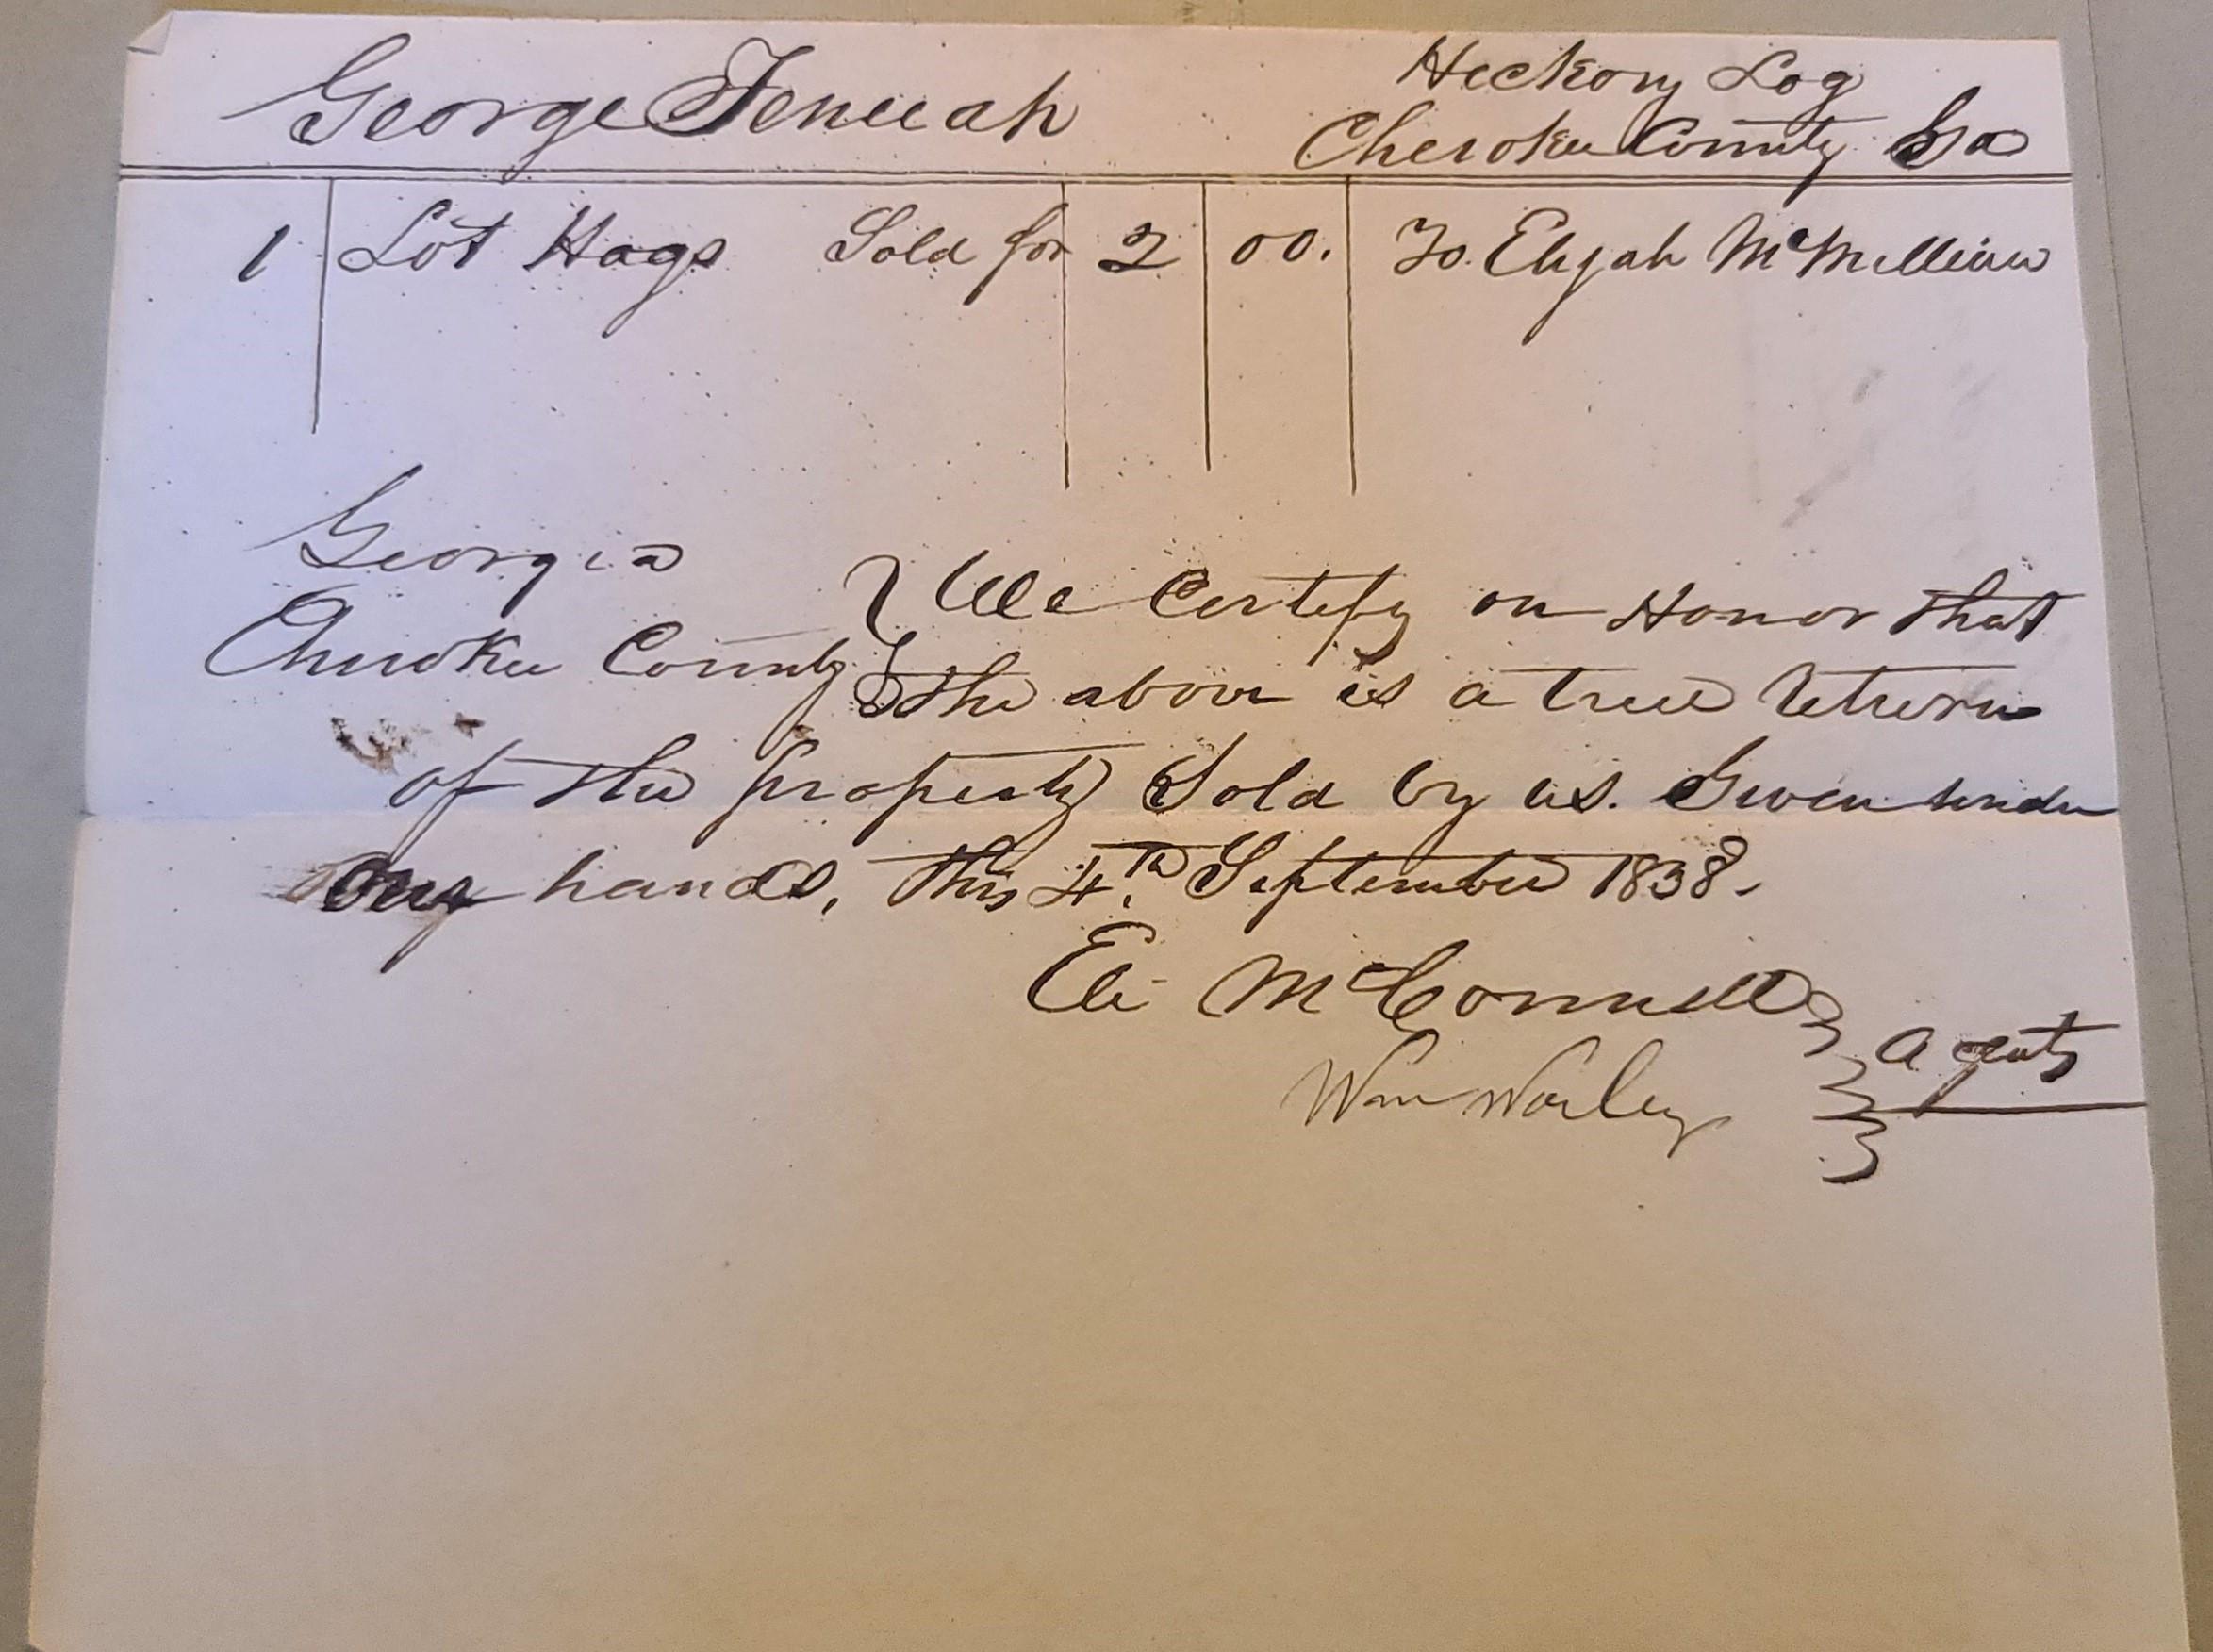 George Tenuah
Heckory Log
Cherokee County Ga
1 Lot Hogs Sold for 2 00. To. Elijah McMillian
Georgia
Cherokee County
We Certify on Honor that
the above is a true return
of the property Sold by us. Given under
our hands, this 4th. September 1838.
Eli McConnell
Agents
Wm Worley